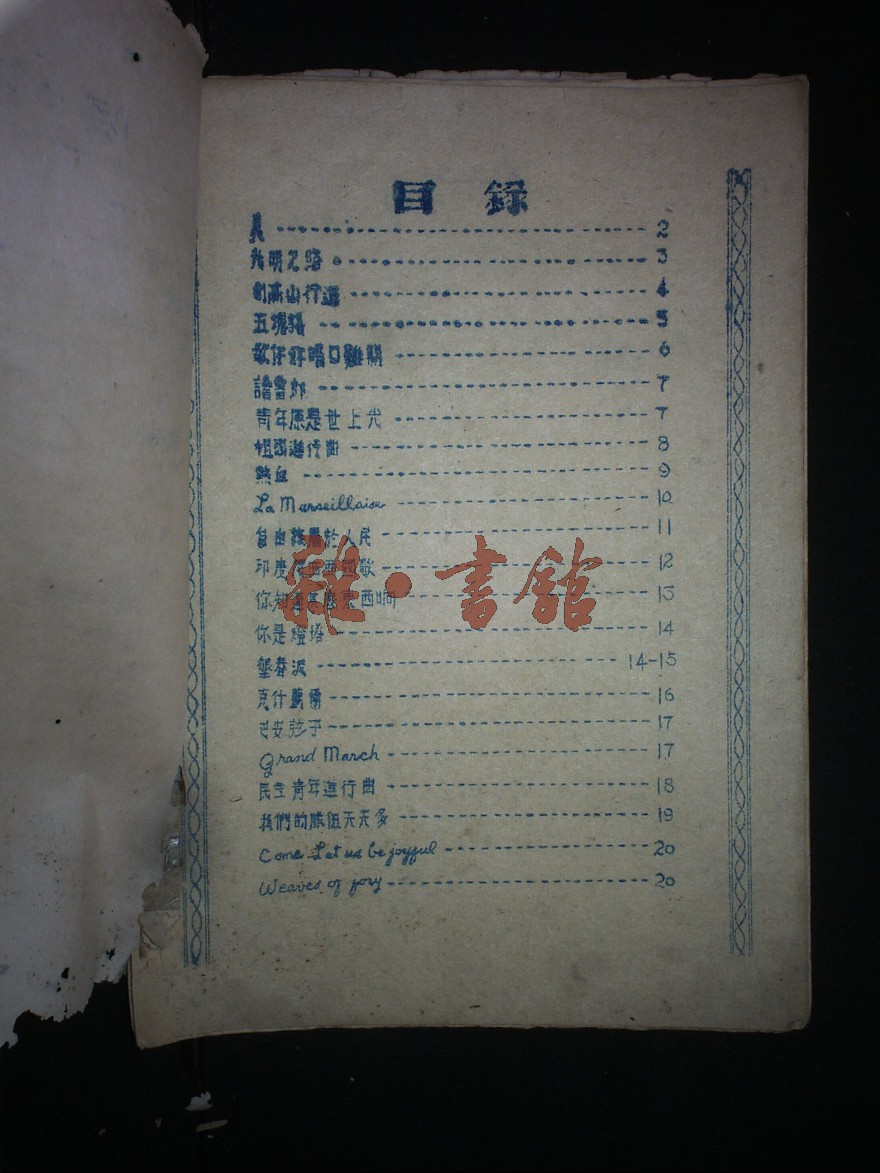 目 錄
2
光明之路 3
創高山行進 4
五塊錢 5
6
7
青年原是世上光 7
祖國進行曲 8
熱血 9
La Marseillaise 10
自由 於人民 11
印度 西 歌 12
你知道 東西 13
你是燈塔 14
墾春泥 14-15
克什 爾 16
孩子 17
Grand March 17
民主青年進行曲 18
我們的隊伍天天多 19
Come Let us be joyful 20
Weaves of jory 20
雜·書館